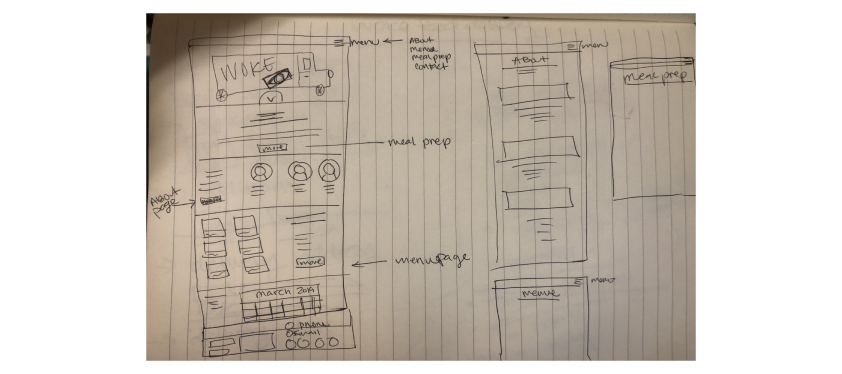 menu
About
menu
meal prep
contact
WOKE
v
more
meal prep
About
page
more
menu page
march 2019
phone
email
menu
About
meal prep
menu
menue